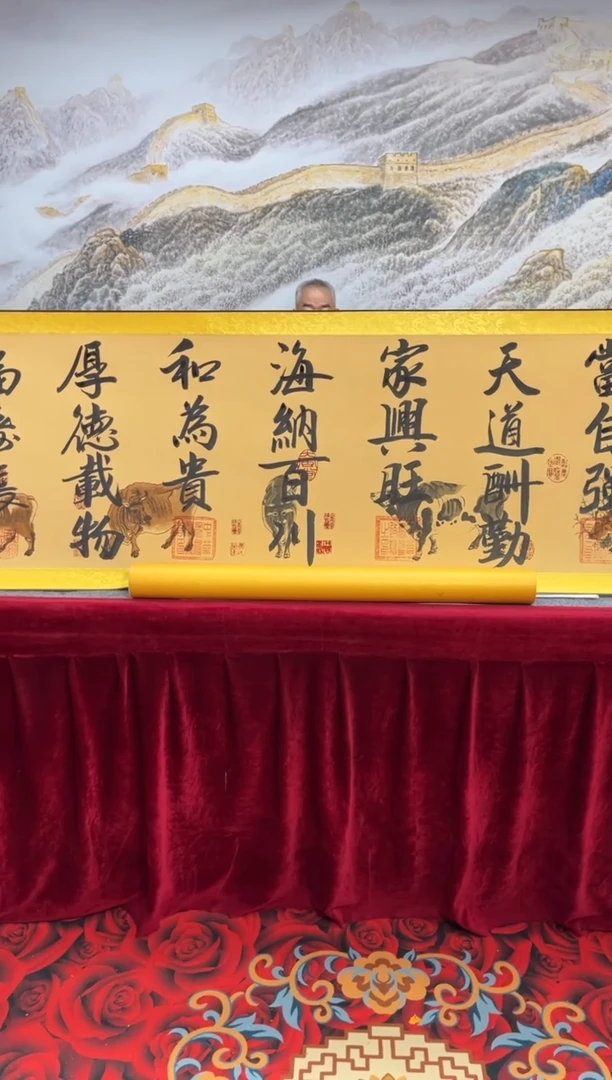 當自強
天道酬勤
家興旺
海納百川
和為貴
厚德載物